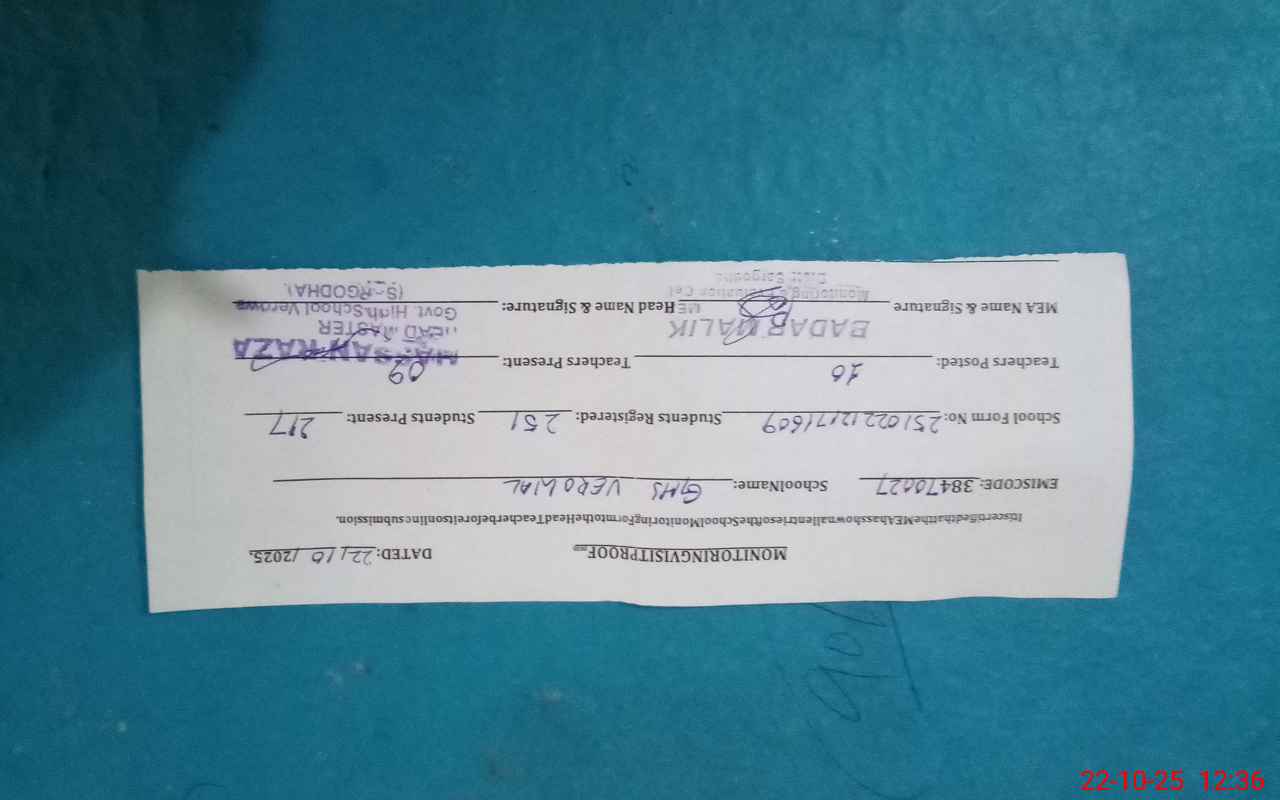 MONITORINGVISITPROOF DATED: 22/10/2025.
ItiscertifiedthattheMEAhasshownallentriesoftheSchoolMonitoringFormtotheHeadTeacherbeforeitsonlinesubmission.
EMISCODE: 38470027 SchoolName: GHS VEROWAL
School Form No: 25102212171609 Students Registered: 251 Students Present: 217
Teachers Posted: 10 Teachers Present: 09
BADAR MALIK
HEAD MASTER
MEA Name & Signature ME Head Name & Signature: Govt. High School
Monitoring & Evaluation Cell
Distt Sargodha
22-10-25 12:36